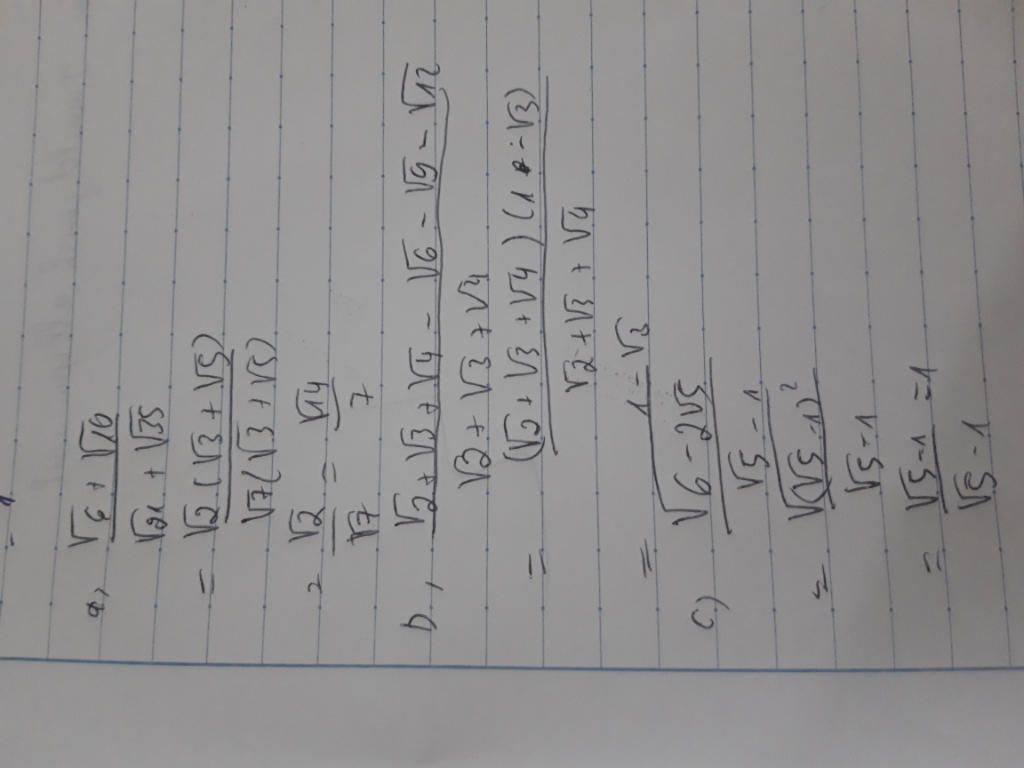 a, (√6 + √10)/(√21 + √35)
= (√2 (√3 + √5))/(√7 (√3 + √5))
= √2/√7 = √14/7
b, (√2 + √3 + √4 - √6 - √9 - √12)/(√2 + √3 + √4)
= ((√2 + √3 + √4) (1 - √3))/(√2 + √3 + √4)
= 1 - √3
c) √(6 - 2√5)/(√5 - 1)
= √((√5 - 1)²)/(√5 - 1)
= (√5 - 1)/(√5 - 1) = 1